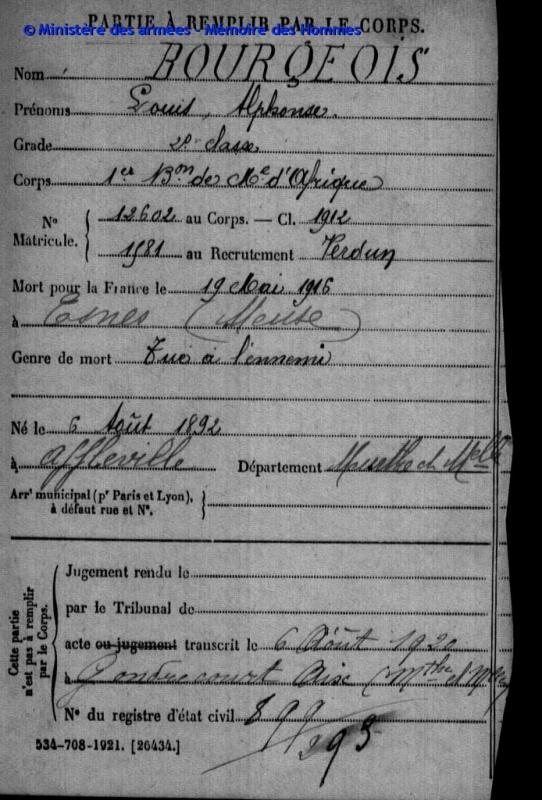 PARTIE À REMPLIR PAR LE CORPS.
© Ministère des armées - Mémoire des Hommes
Nom BOURGEOIS
Prénoms Louis, Alphonse.
Grade 2e classe
Corps 1er Bon de Me d'Afrique
No Matricule. { 12602 au Corps. — Cl. 1912
1581 au Recrutement Verdun
Mort pour la France le 19 Mai 1916
à Esnes (Meuse)
Genre de mort Tué à l'ennemi
Né le 6 Août 1892
à Affleville Département Meurthe et Melle
Arrt municipal (pr Paris et Lyon), à défaut rue et No. }
Cette partie n'est pas à remplir par le Corps.
Jugement rendu le
par le Tribunal de
acte ou jugement transcrit le 6 Août 1920
à Gondrecourt Aix (Mthe et Mlle)
No du registre d'état civil 899
295
534-708-1921. [26434.]